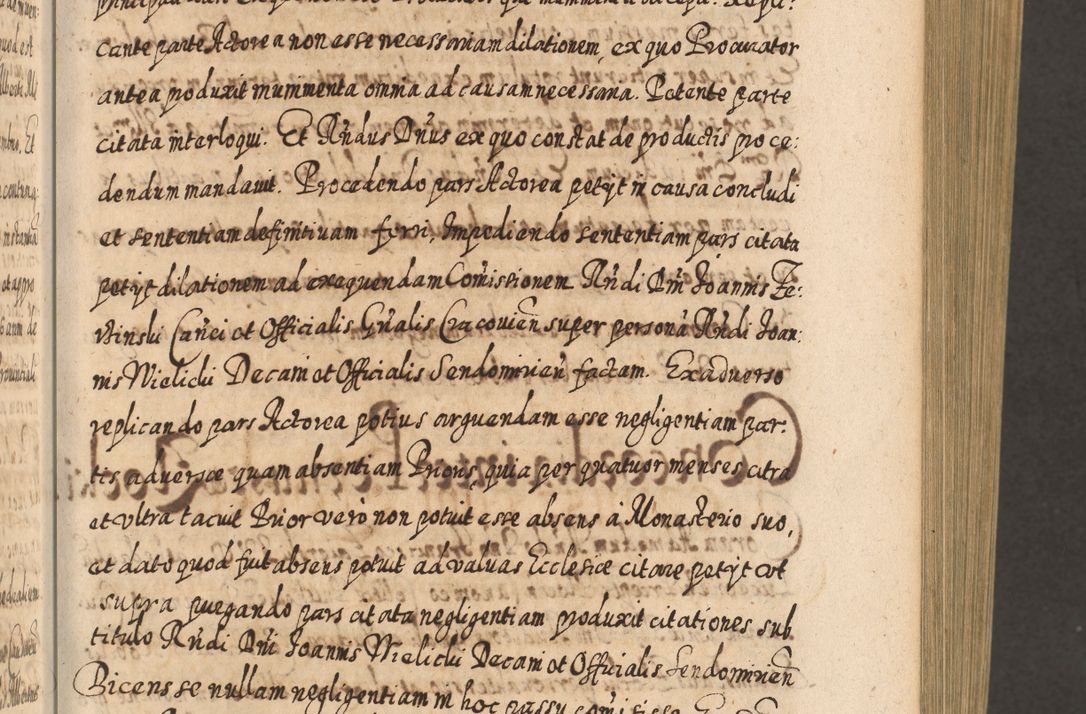 cante parte Actorea non esse necessariam dilationem, ex quo Procurator
antea produxit munimenta omnia ad causam necessaria. Petente parte
citata interloqui. Et R̃ndus Dñus ex quo constat de productis proce:
dendum mandavit. Procedendo pars Actorea petijt in causa concludi
et sententiam definitivam fyrri, Impediendo sententiam pars citata
petijt dilationem ad exequendam Com̃issionem R̃ndi Dñi Joannis
Cañci et Officialis Gñalis Cracovieñ super persona R̃ndi Joan:
nis Wielicki Decani et Officialis Sendomirieñ factam. Exadverso
replicando pars Actorea potius arguendam esse negligentiam par:
tis adversæ quam absentiam Prioris, quia per quatuor menses citra
et ultra tacuit Prior vero non potuit esse absens à Monasterio suo,
et dato quod fuit absens potuit ad valvas Ecclesiæ citare petijt ut
supra purgando pars citata negligentiam produxit citationes sub
titulo R̃ndi Dñi Joannis Wielicki Decani et Officialis Sendomirieñ
Dicens se nullam negligentiam in hoc passu com̃isisse